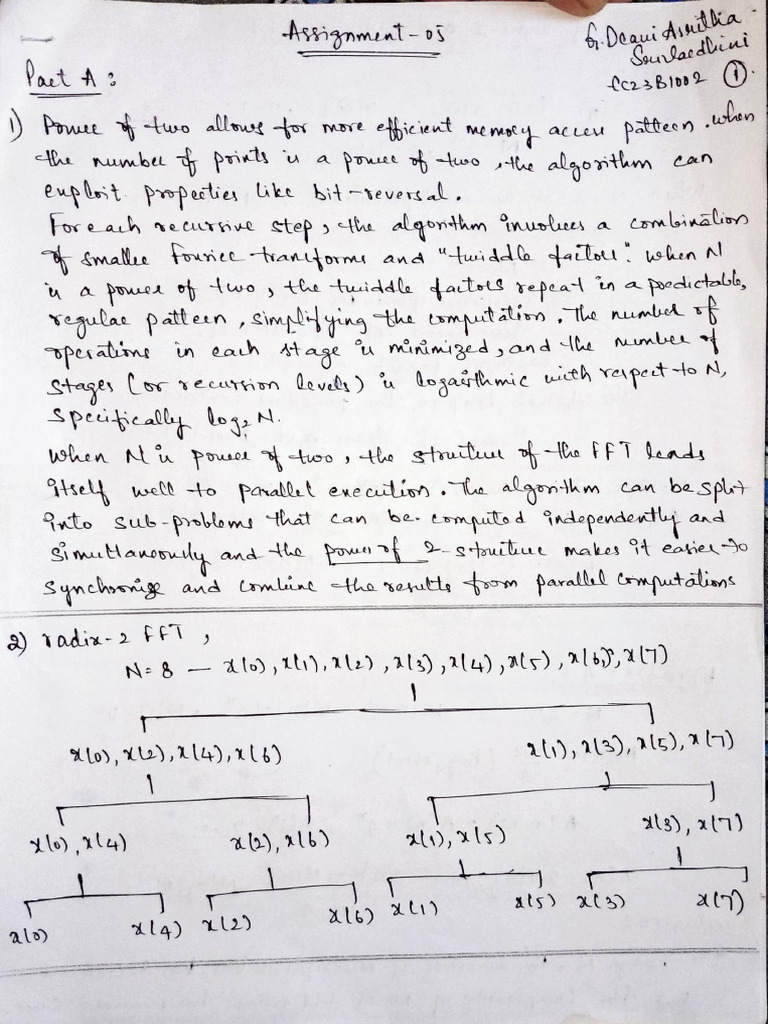 Assignment-05
G. Deavi Asritha
EC23B1002 ①.
Part A :
1) Power of two allows for more efficient memory access pattern. when
the number of points is a power of two, the algorithm can
exploit properties like bit-reversal.
For each recursive step, the algorithm involves a combination
of smaller Fourier transforms and "twiddle factors". when N
is a power of two, the twiddle factors repeat in a predictable,
regular pattern, simplifying the computation. The number of
operations in each stage is minimized, and the number of
stages (or recursion levels) is logarithmic with respect to N,
specifically log₂ N.
when N is power of two, the structure of the FFT lends
itself well to parallel execution. The algorithm can be split
into sub-problems that can be computed independently and
simultaneously and the power of 2-structure makes it easier to
synchronize and combine the results from parallel computations
2) radix-2 FFT,
N=8 — x(0), x(1), x(2), x(3), x(4), x(5), x(6), x(7)
x(0), x(2), x(4), x(6) x(1), x(3), x(5), x(7)
x(0), x(4) x(2), x(6) x(1), x(5) x(3), x(7)
x(0) x(4) x(2) x(6) x(1) x(5) x(3) x(7)